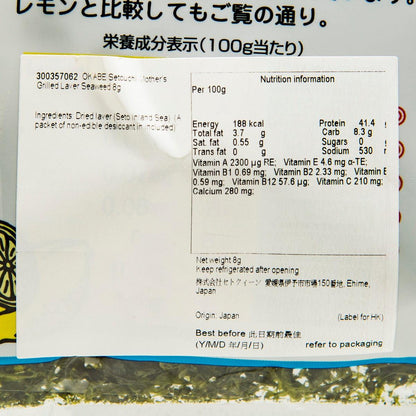 レモンと比較してもご覧の通り。
栄養成分表示(100g当たり)
300357062 OKABE Setouchi Mother's
Grilled Laver Seaweed 8g
Ingredients: Dried laver (Seto Inland Sea) (A
packet of non-edible desiccant in included)
Nutrition information
Per 100g
Energy 188 kcal Protein 41.4
Total fat 3.7 g Carb 8.3 g
Sat. fat 0.55 g Sugars 0
Trans fat 0 g Sodium 530
Vitamin A 2300 µg RE; Vitamin E 4.6 mg α-TE;
Vitamin B1 0.69 mg; Vitamin B2 2.33 mg; Vitamin
0.59 mg; Vitamin B12 57.6 µg; Vitamin C 210 mg;
Calcium 280 mg;
Net weight 8g
Keep refrigerated after opening
株式会社セトクィーン 愛媛県伊予市市場150番地, Ehime,
Japan
Origin: Japan (Label for HK)
Best before 此日期前最佳
(Y/M/D 年/月/日) refer to packaging